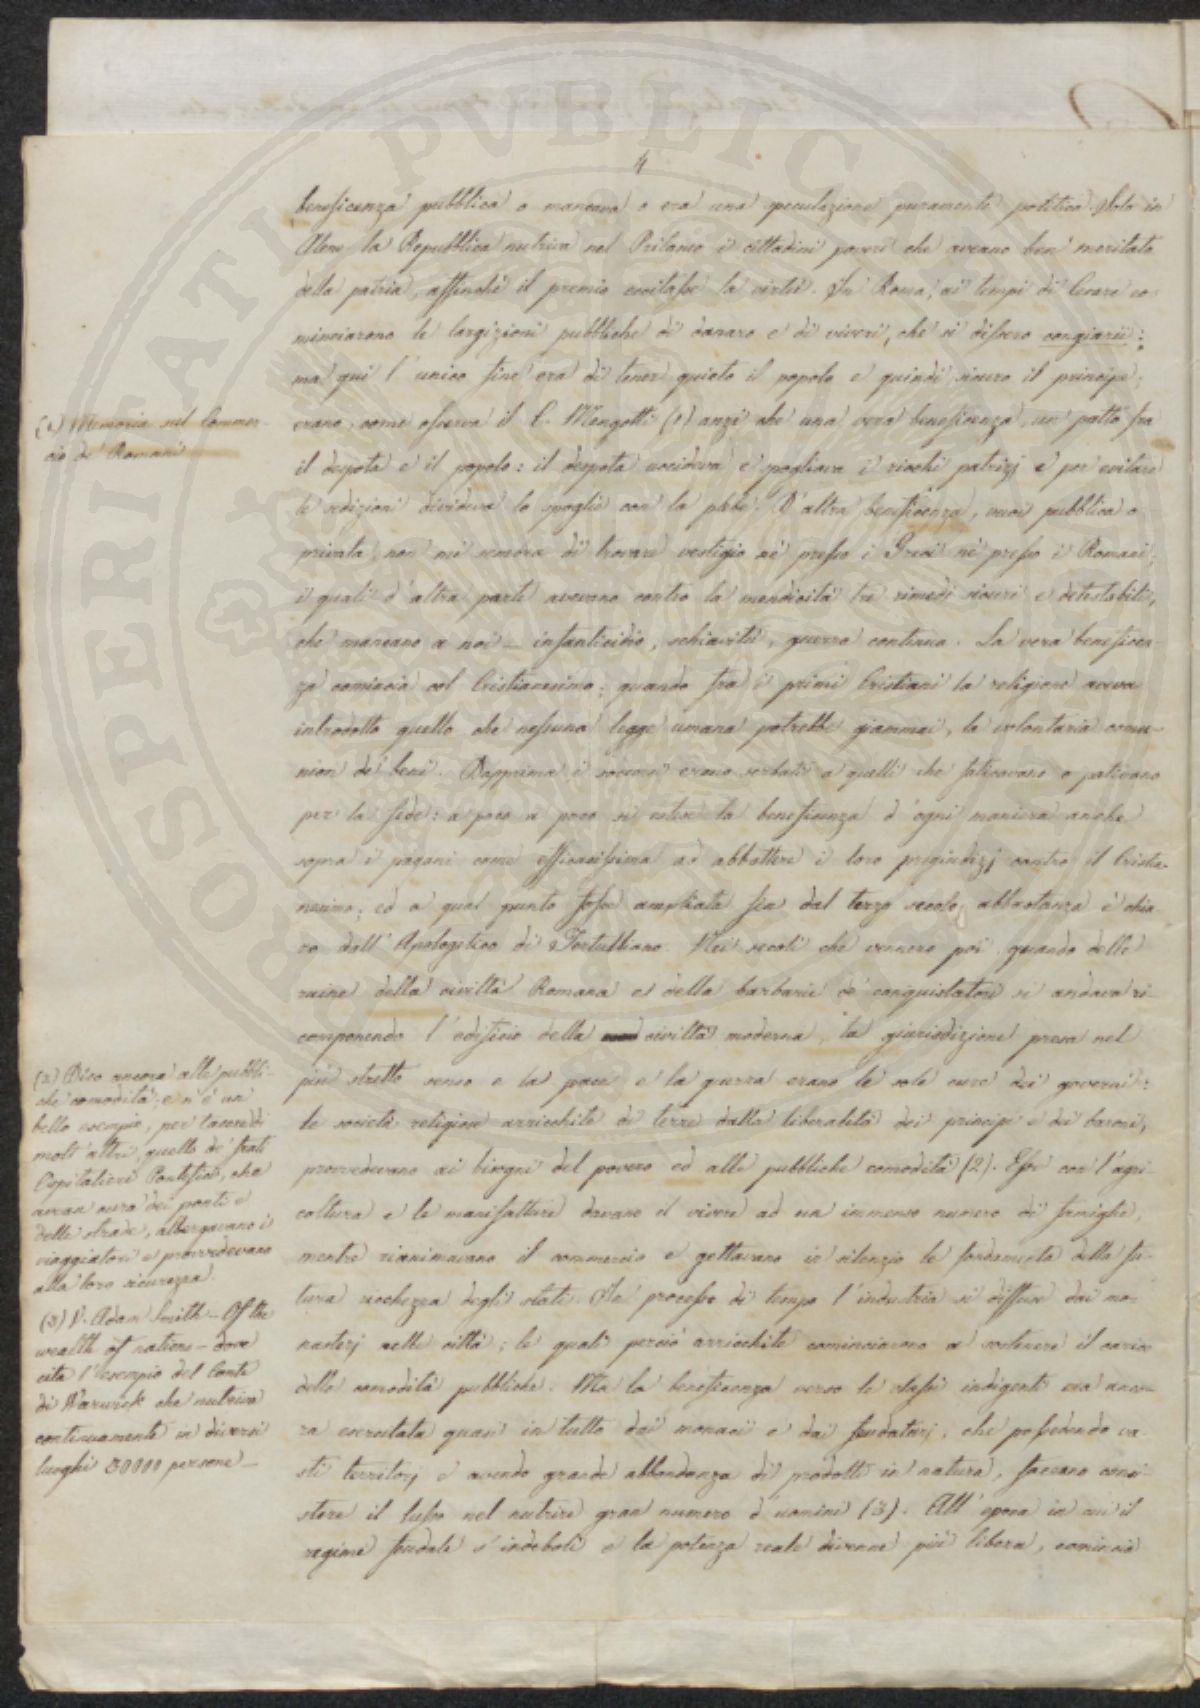 4
beneficenza pubblica o mancava o era una speculazione puramente politica. Solo in
Atene la Repubblica nutriva nel Pritaneo i cittadini poveri che aveano ben meritato
della patria, affinchè il premio eccitasse la virtù. In Roma, ai tempi di Cesare co-
minciarono le largizioni pubbliche di danaro e di viveri, che si dissero congiarii:
ma qui l'unico fine era di tener quieto il popolo e quindi sicuro il principe;
erano, come osserva il C. Mengotti (1) anzi che una vera beneficenza, un patto fra
il despota e il popolo: il despota uccideva e spogliava i ricchi patrizj e per evitare
le sedizioni divideva le spoglie con la plebe. D'altra beneficenza, vuoi pubblica o
privata, non mi sembra di trovare vestigio nè presso i Greci nè presso i Romani;
i quali d'altra parte avevano contro la mendicità tre rimedi sicuri e detestabili,
che mancano a noi — infanticidio, schiavitù, guerra continua. La vera beneficen-
za comincia col Cristianesimo; quando fra i primi Cristiani la religione aveva
introdotto quello che nessuna legge umana potrebbe giammai, la volontaria comu-
nion de' beni. Dapprima i soccorsi erano serbati a quelli che faticavano o pativano
per la fede: a poco a poco si estese la beneficenza d'ogni maniera anche
sopra i pagani come efficacissima ad abbattere i loro pregiudizj contro il Cristia-
nesimo; ed a qual punto fosse ampliata fin dal terzo secolo, abbastanza è chia-
ro dall'Apologetico di Tertulliano. Nei secoli che vennero poi, quando dalle
ruine della civiltà Romana e della barbarie de' conquistatori si andava ri-
componendo l'edificio della civiltà moderna, la giurisdizione presa nel
più stretto senso e la pace e la guerra erano le sole cure dei governi:
le società religiose arricchite di terre dalla liberalità dei principi e dei baroni,
provvedevano ai bisogni del povero ed alle pubbliche comodità (2). Esse con l'agri-
coltura e le manifatture davano il vivere ad un immenso numero di famiglie,
mentre rianimavano il commercio e gettavano in silenzio le fondamenta della fu-
tura ricchezza degli stati. In processo di tempo l'industria si diffuse dai mo-
nasterj nelle città; le quali perciò arricchite cominciarono a sostenere il carico
delle comodità pubbliche. Ma la beneficenza verso le classi indigenti era anco-
ra esercitata quasi in tutto dai monaci e dai feudatarj, che possedendo va-
sti territorj e avendo grande abbondanza di prodotti in natura, facevano consi-
stere il lusso nel nutrire gran numero d'uomini (3). All'epoca in cui il
regime feudale s'indebolì e la potenza reale divenne più libera, cominciò
(1) Memoria sul Commer-
cio de' Romani
(2) Dico ancora alle pubbli-
che comodità; e n'è un
bello esempio, per tacere di
molt'altri, quello de' frati
Ospitalieri Pontefici, che
avean cura dei ponti e
delle strade, albergavano i
viaggiatori e provvedevano
alla loro sicurezza.
(3) V. Adam Smith — Of the
wealth of nations — dove
cita l'esempio del Conte
di Warwick che nutriva
continuamente in diversi
luoghi 30000 persone —
PROSPERITATI PVBLICAE